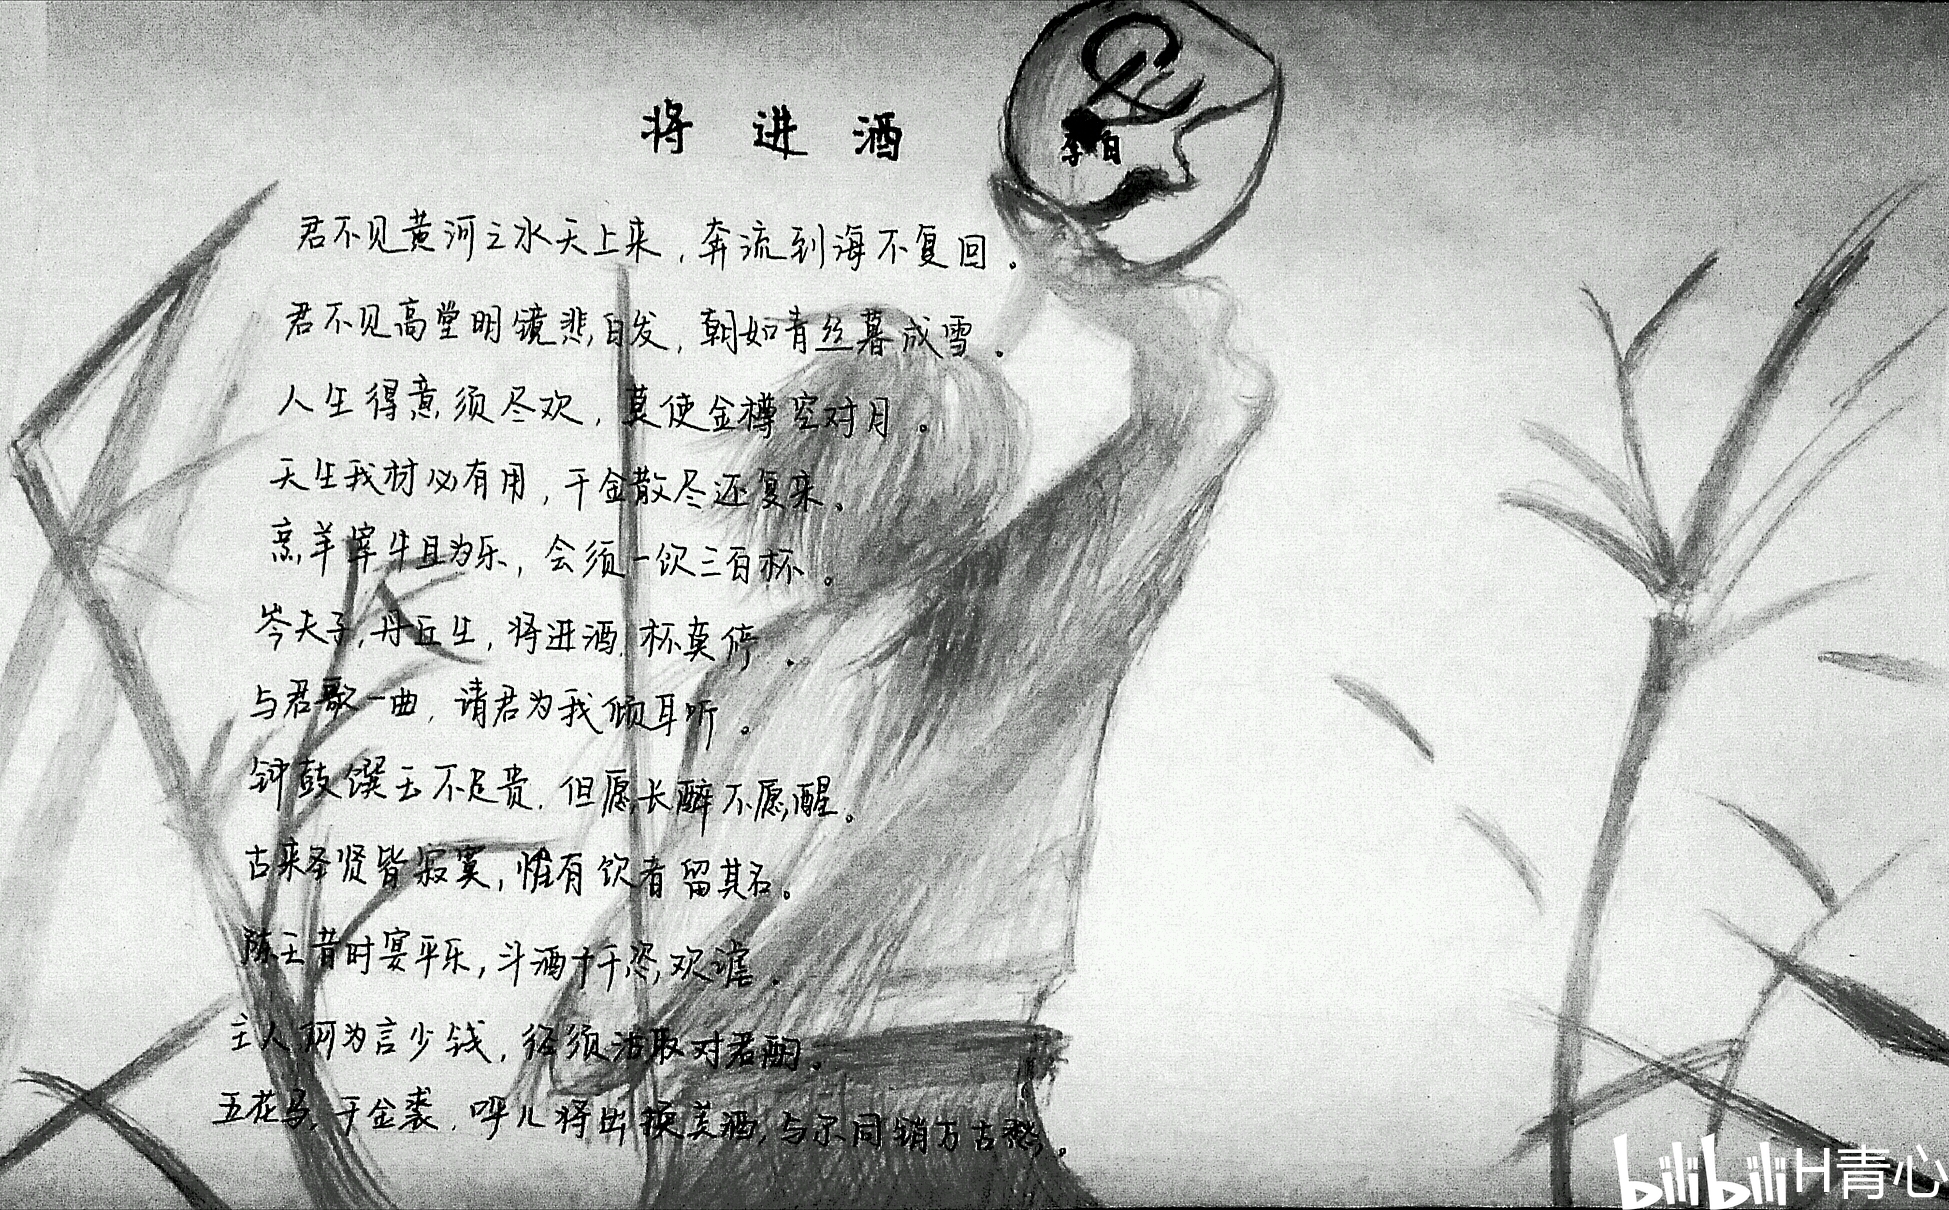 将进酒
李白
君不见黄河之水天上来，奔流到海不复回。
君不见高堂明镜悲白发，朝如青丝暮成雪。
人生得意须尽欢，莫使金樽空对月。
天生我材必有用，千金散尽还复来。
烹羊宰牛且为乐，会须一饮三百杯。
岑夫子，丹丘生，将进酒，杯莫停。
与君歌一曲，请君为我倾耳听。
钟鼓馔玉不足贵，但愿长醉不愿醒。
古来圣贤皆寂寞，惟有饮者留其名。
陈王昔时宴平乐，斗酒十千恣欢谑。
主人何为言少钱，径须沽取对君酌。
五花马，千金裘，呼儿将出换美酒，与尔同销万古愁。
酒
bilibili H青心